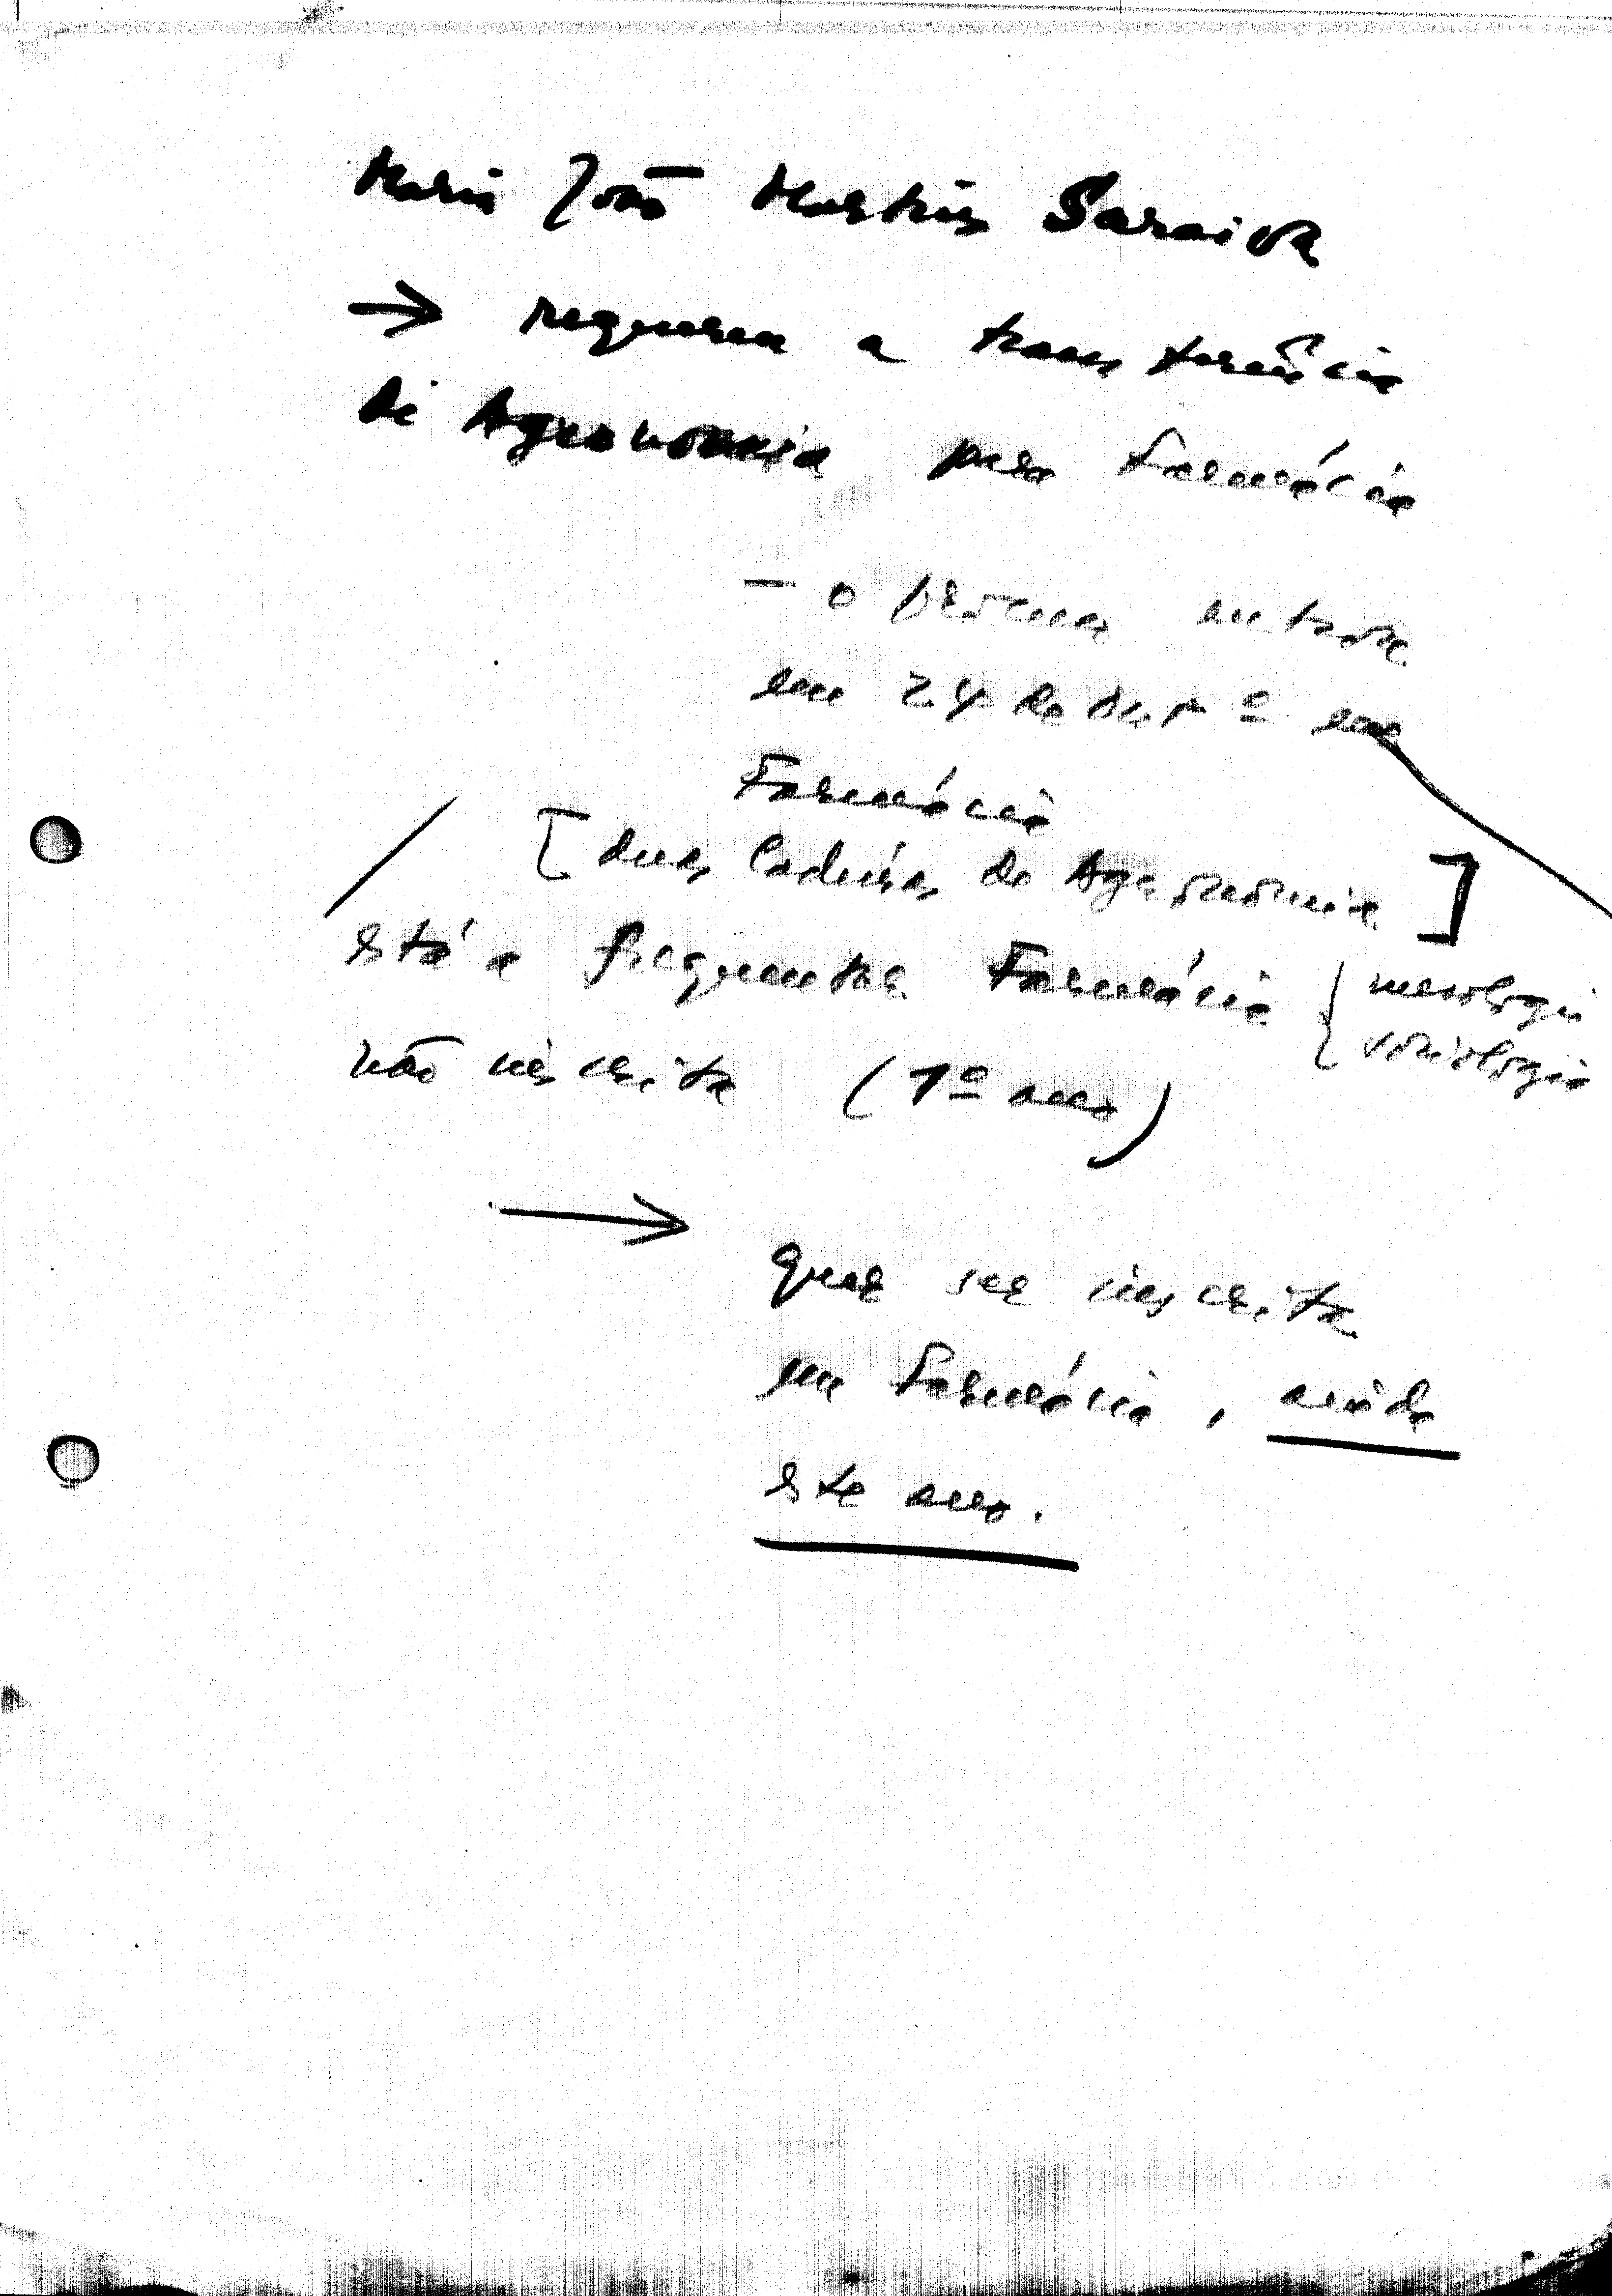 Maria João Martins Saraiva
→ requereu a transferência
de Agronomia para Farmácia
— o processo entrou
em 24 de Out.º em
Farmácia
[duas Cadeiras de Agronomia]
está a frequentar Farmácia { mesologia
sociologia
não inscrita (1º ano)
→ quer ser inscrita
em Farmácia, ainda
este ano.